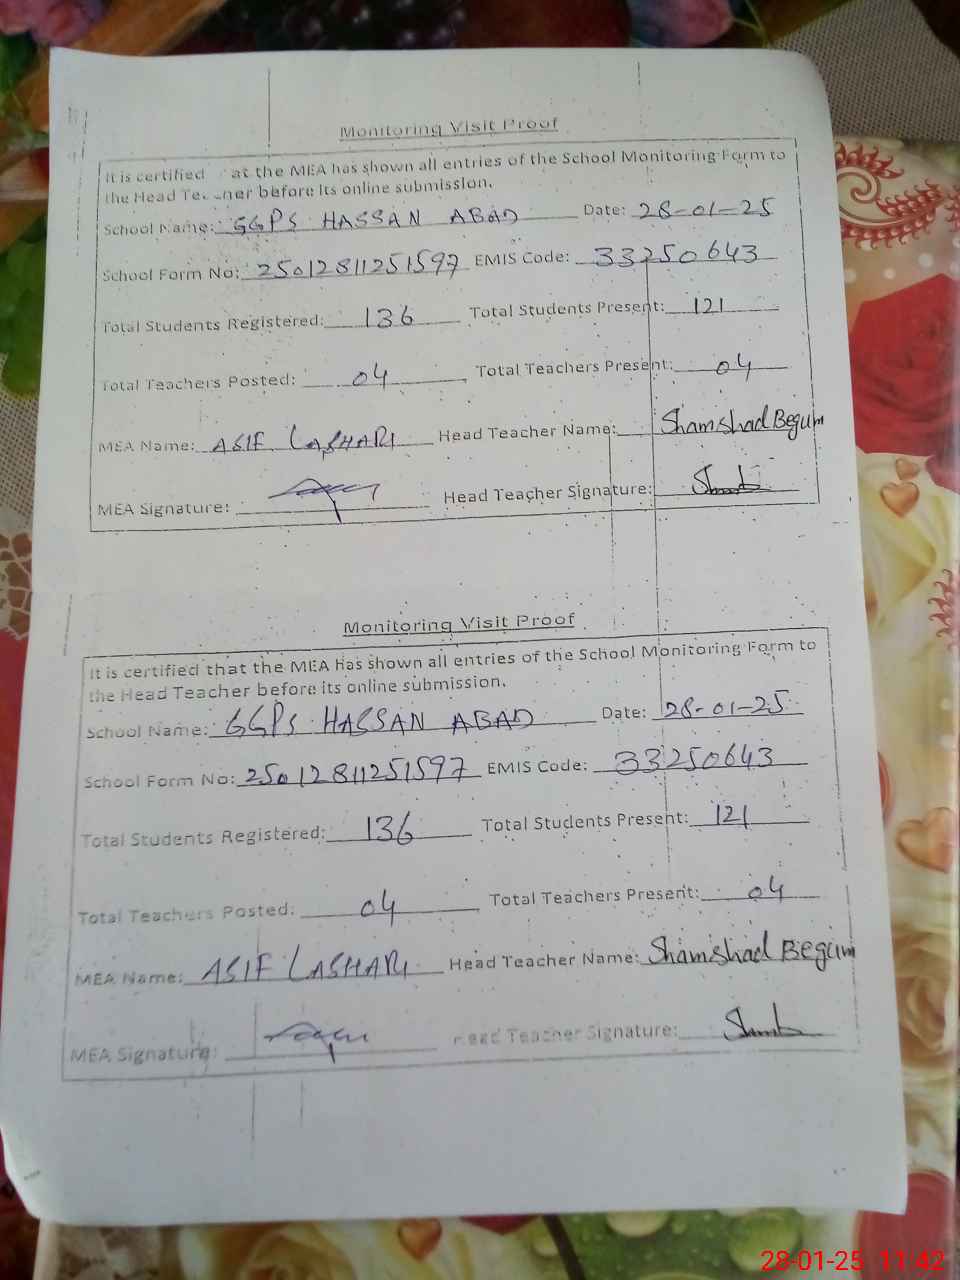 Monitoring Visit Proof
It is certified at the MEA has shown all entries of the School Monitoring Form to
the Head Te. ner before its online submission.
School Name: GGPS HASSAN ABAD Date: 28-01-25
School Form No: 25012811251597 EMIS Code: 33250643
Total Students Registered: 136 Total Students Present: 121
Total Teachers Posted: 04 Total Teachers Present: 04
MEA Name: ASIF LASHARI Head Teacher Name: Shamshad Begum
MEA Signature: Head Teacher Signature:
Monitoring Visit Proof
It is certified that the MEA has shown all entries of the School Monitoring Form to
the Head Teacher before its online submission.
School Name: GGPS HASSAN ABAD Date: 28-01-25
School Form No: 25012811251597 EMIS Code: 33250643
Total Students Registered: 136 Total Students Present: 121
Total Teachers Posted: 04 Total Teachers Present: 04
MEA Name: ASIF LASHARI Head Teacher Name: Shamshad Begum
MEA Signature: Head Teacher Signature:
28-01-25 11:42